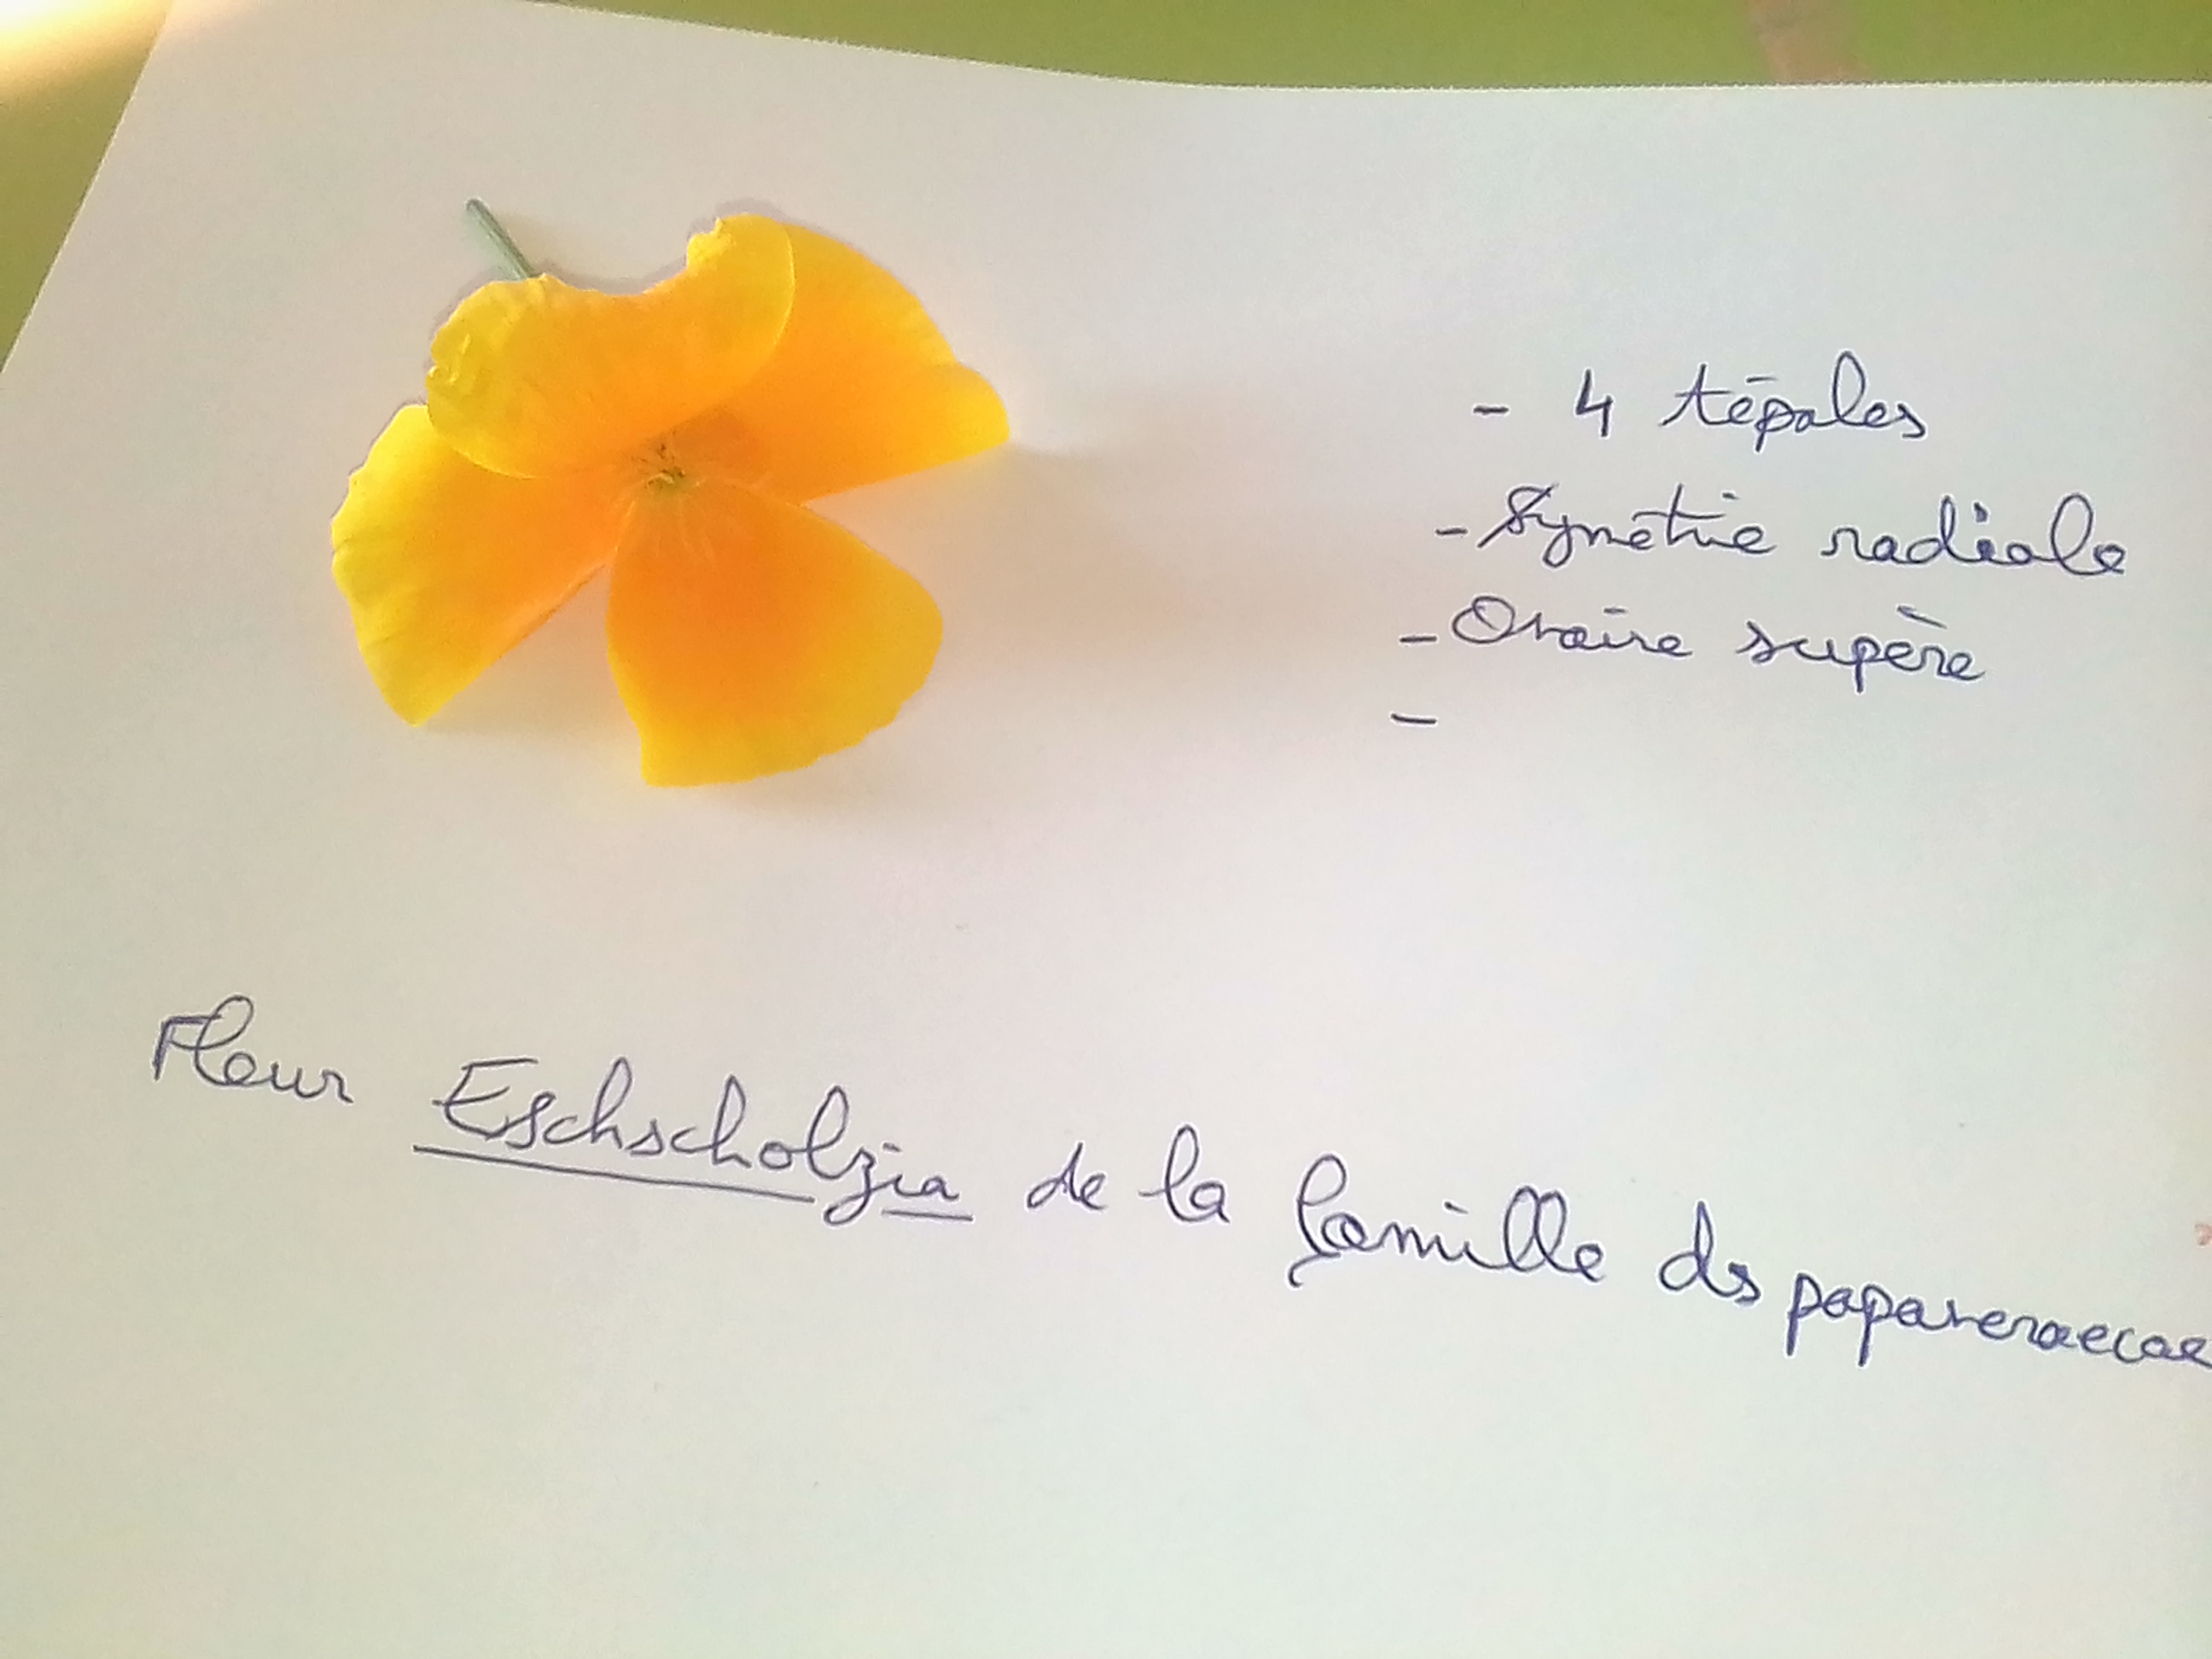 - 4 tépales
- Symétrie radiale
- Ovaire supère
-
Fleur Eschscholzia de la famille ds papaveraecae